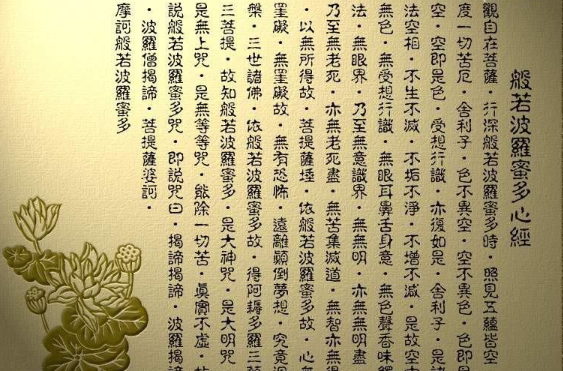 般若波羅蜜多心經
觀自在菩薩・行深般若波羅蜜多時・照見五蘊皆空
度一切苦厄・舍利子・色不異空・空不異色・色即是
空・空即是色・受想行識・亦復如是・舍利子・是諸
法空相・不生不滅・不垢不淨・不增不減・是故空中
無色・無受想行識・無眼耳鼻舌身意・無色聲香味觸
法・無眼界・乃至無意識界・無無明・亦無無明盡
乃至無老死・亦無老死盡・無苦集滅道・無智亦無得
・以無所得故・菩提薩埵・依般若波羅蜜多故・心無
罣礙・無罣礙故・無有恐怖・遠離顛倒夢想・究竟
槃・三世諸佛・依般若波羅蜜多故・得阿耨多羅三藐
三菩提・故知般若波羅蜜多・是大神咒・是大明咒
是無上咒・是無等等咒・能除一切苦・真實不虛・故
說般若波羅蜜多咒・即說咒曰・揭諦揭諦・波羅揭諦
・波羅僧揭諦・菩提薩婆訶・
摩訶般若波羅蜜多